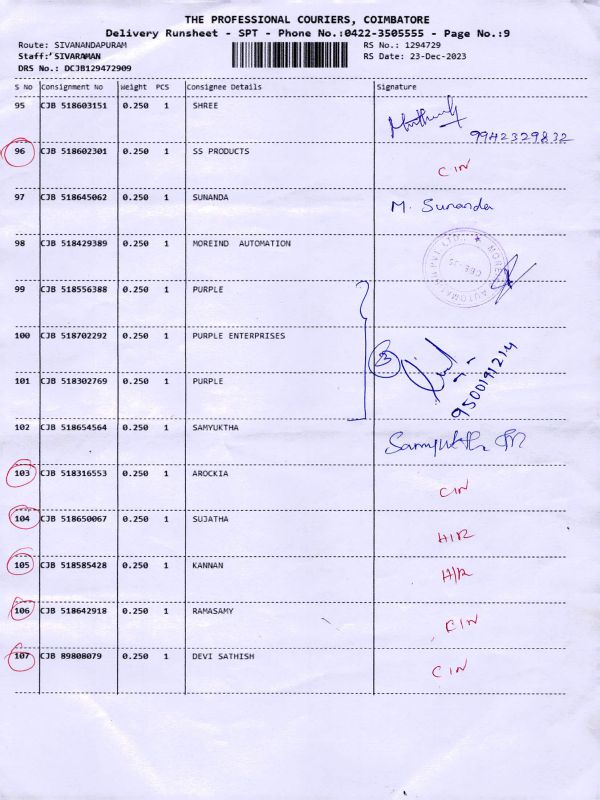 THE PROFESSIONAL COURIERS, COIMBATORE
Delivery Runsheet - SPT - Phone No.:0422-3505555 - Page No.:9
Route: SIVANANDAPURAM RS No.: 1294729
Staff: SIVARAMAN RS Date: 23-Dec-2023
DRS No.: DCJB129472909
S No Consignment No Weight PCS Consignee Details Signature
95 CJB 518603151 0.250 1 SHREE
9942329832
96 CJB 518602301 0.250 1 SS PRODUCTS CIN
97 CJB 518645062 0.250 1 SUNANDA M. Sunanda
98 CJB 518429389 0.250 1 MOREIND AUTOMATION
99 CJB 518556388 0.250 1 PURPLE
100 CJB 518702292 0.250 1 PURPLE ENTERPRISES 3
101 CJB 518302769 0.250 1 PURPLE
102 CJB 518654564 0.250 1 SAMYUKTHA Samyuktha
103 CJB 518316553 0.250 1 AROCKIA CIN
104 CJB 518650067 0.250 1 SUJATHA H/R
105 CJB 518585428 0.250 1 KANNAN H/R
106 CJB 518642918 0.250 1 RAMASAMY CIN
107 CJB 89808079 0.250 1 DEVI SATHISH CIN